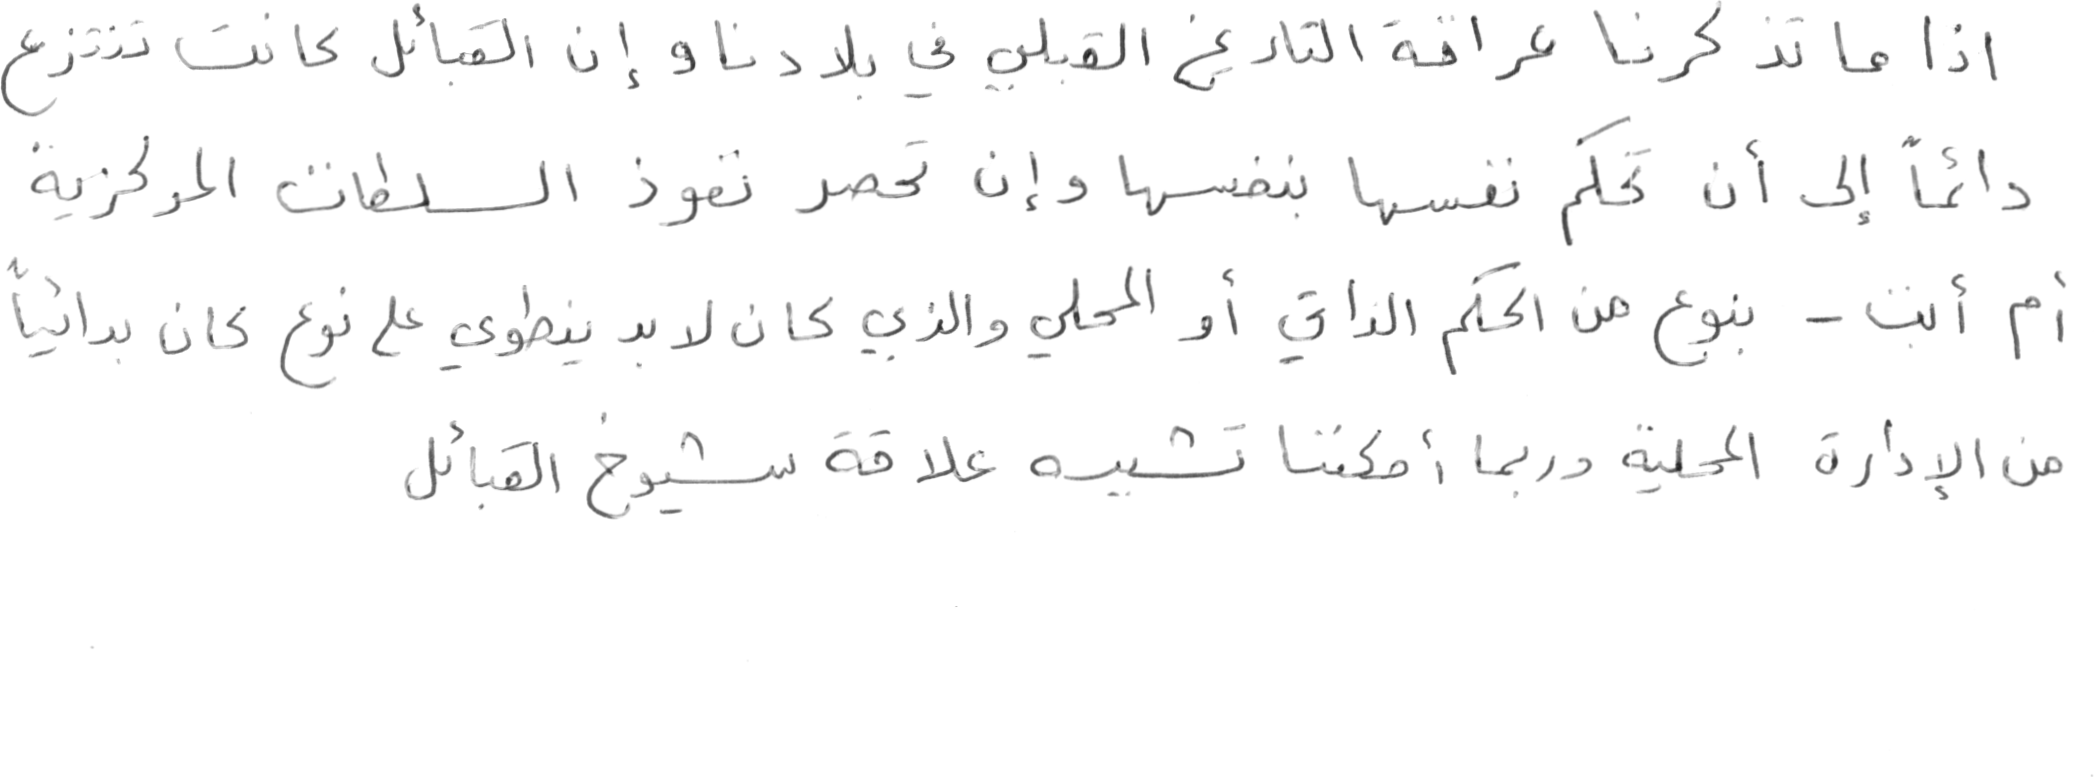 اذا ما تذكرنا عراقة التاريخ القبلي في بلادنا و إن القبائل كانت تنتزع
دائماً إلى أن تحكم نفسها بنفسها وإن تحصر نفوذ السلطات المركزية
أم أبت - بنوع من الحكم الذاتي أو المحلي والذي كان لابد ينطوي على نوع كان بدائياً
من الإدارة المحلية وربما أمكننا تشبيه علاقة شيوخ القبائل